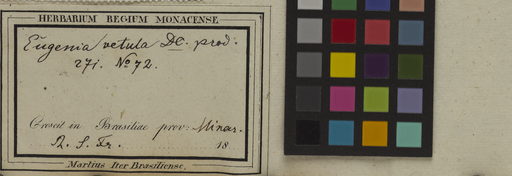 HERBARIUM REGIUM MONACENSE.
Eugenia vetula DC. prod.
271. No 72.
Crescit in Brasiliae prov: Minas.
R. S. Fr. 18
Martius Iter Brasiliense.